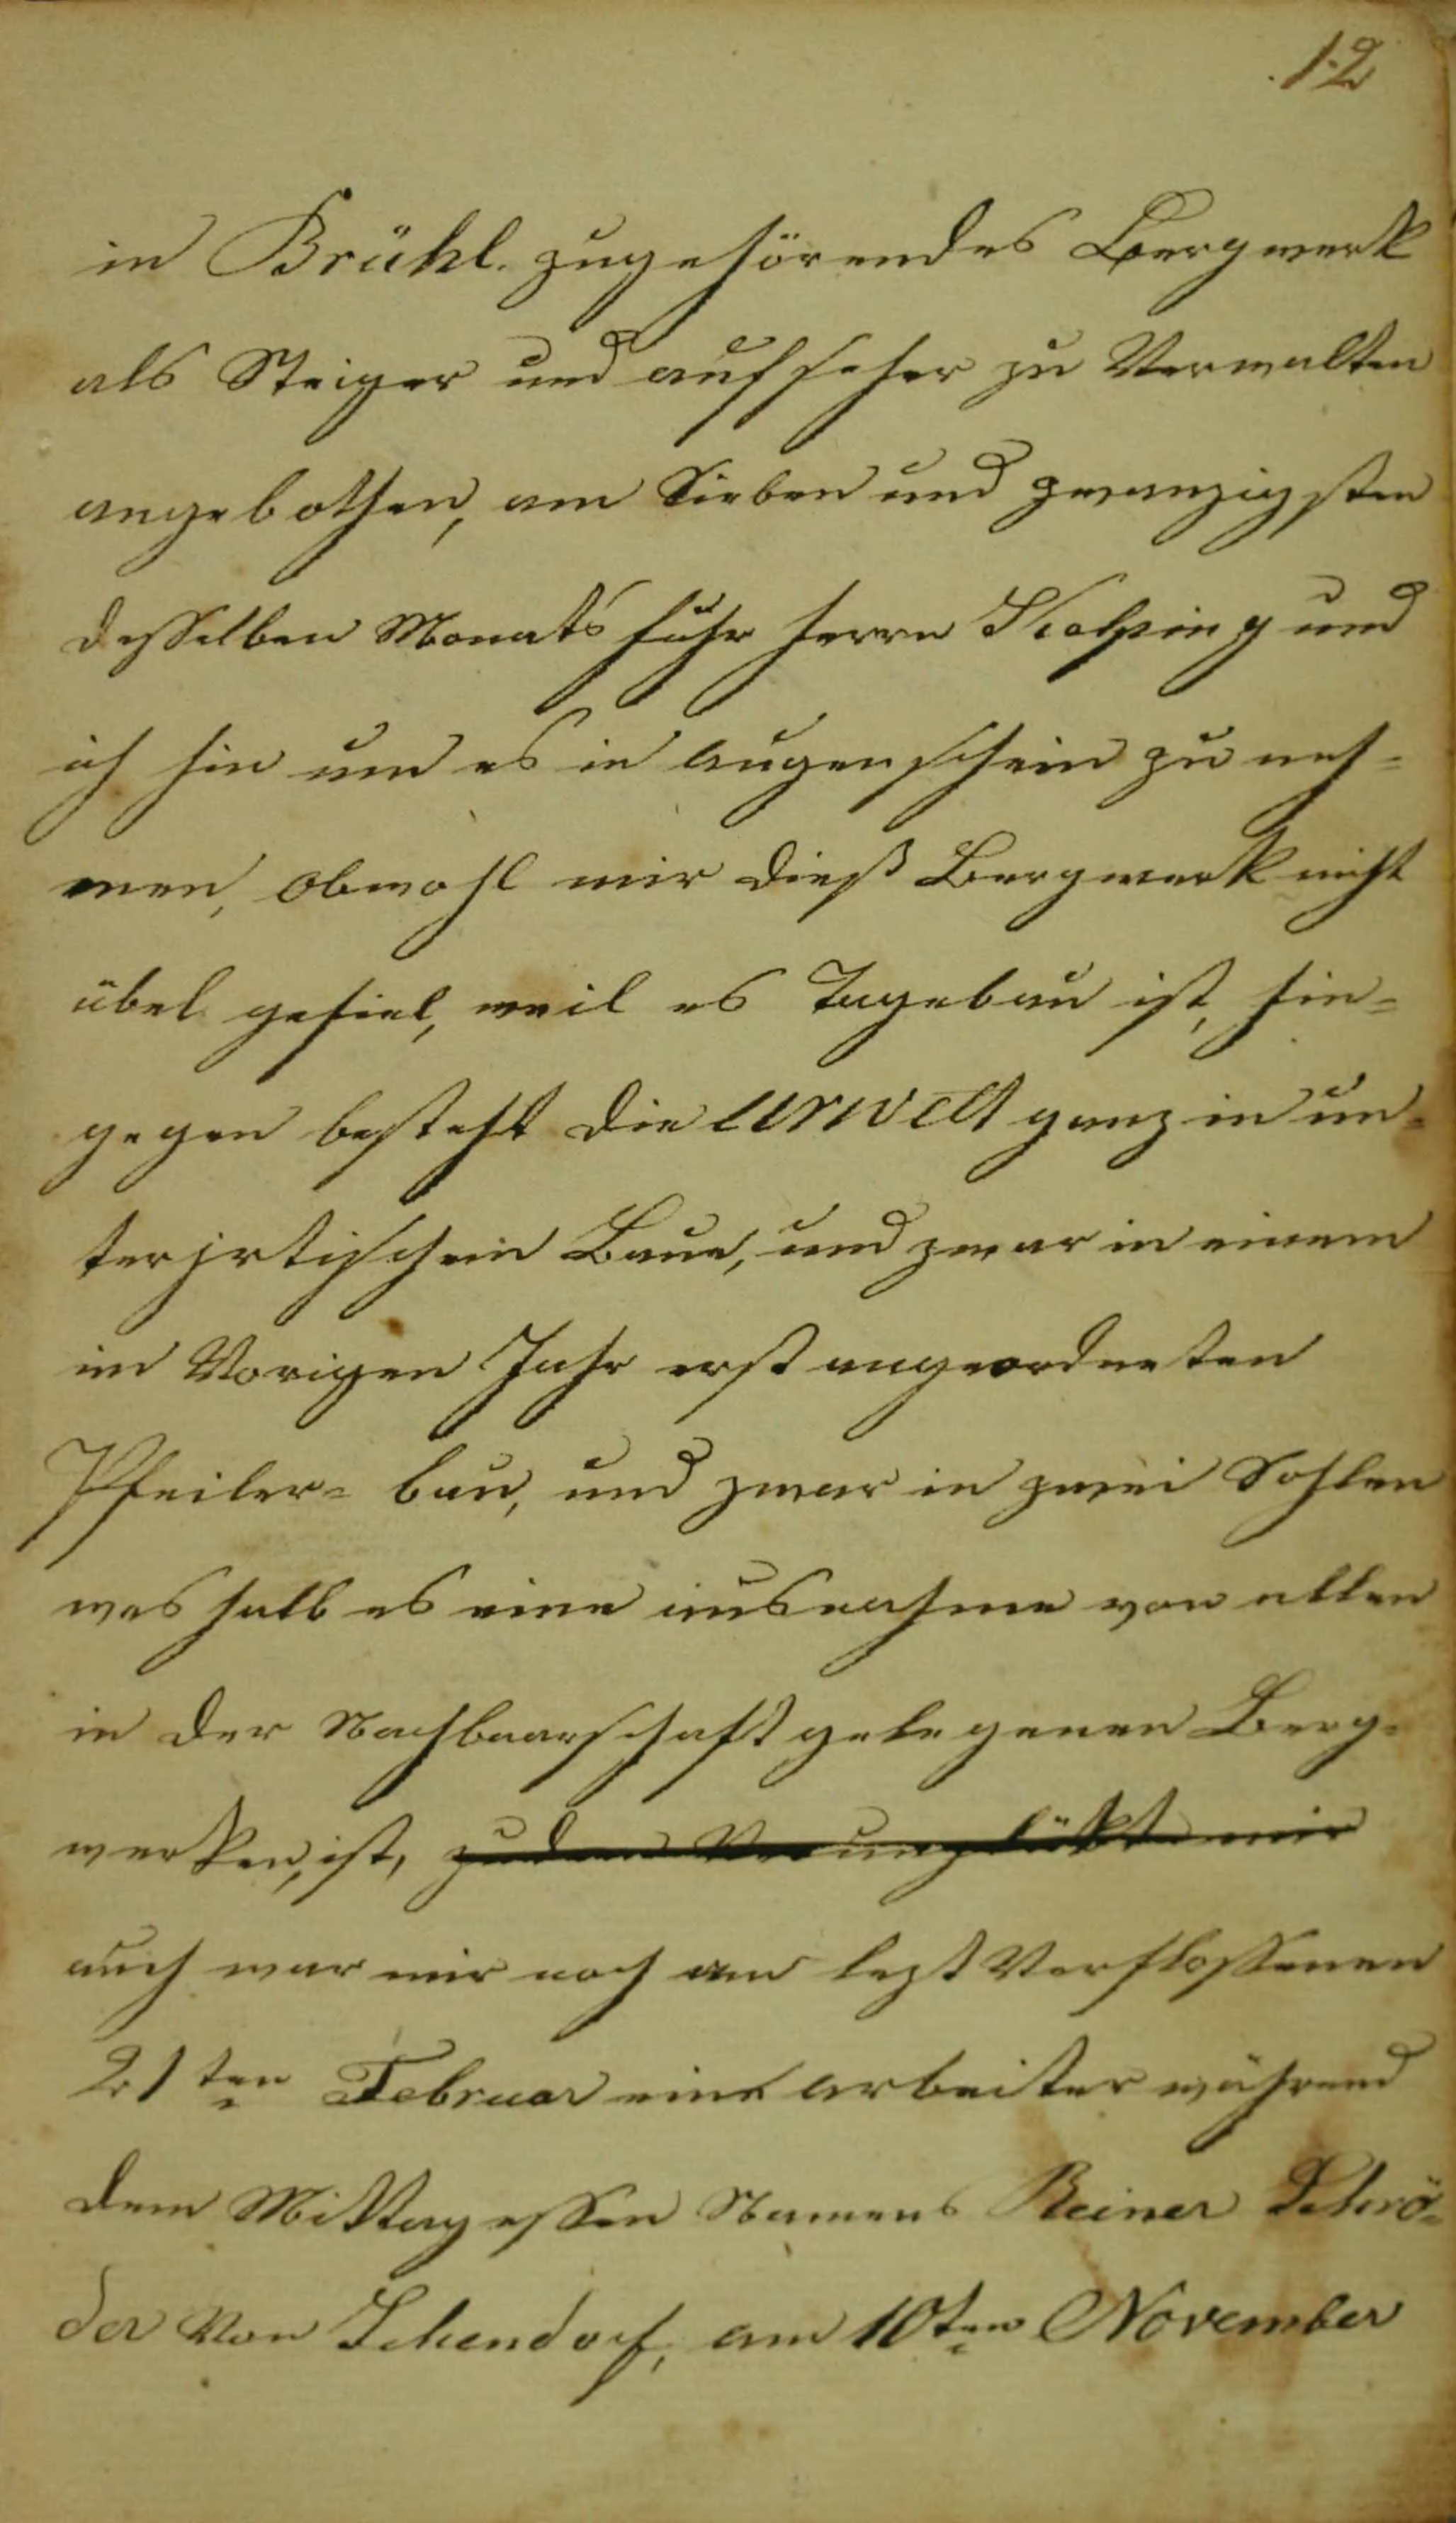 12
in Brühl. zugehörendes Bergwerk
als Steiger und aufseher zu Verwalten
angebothen, am Sieben und zwanzigsten
desselben Monats fuhr herrn Kolping und
ich hin um es in augenschein zu neh=
men, obwohl mir dieß Bergwerk nicht
übel gefiel, weil es Tagebau ist, hin=
gegen besteht die Urwelt ganz in un=
terjrtischein Baue, und zwar in einem
im Vorigen Jahr erst angeordneten
Pfeiler= bau, und zwar in zwei Sohlen
weshalb es eine ausnahme von allen
in der Nachbaarschaft gelegenen Berg=
werken, ist, zudem Verunglückte mir
auch war mir noch am lezt Verflossenen
21ten Februar eine arbeiter während
dem Mittagessen Namens Reiner Schrö=
der Von Schendorf, am 10ten November